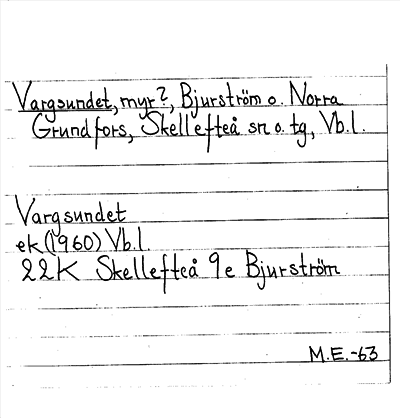 Vargsundet, myr?, Bjurström o. Norra
Grundfors, Skellefteå sn o. tg, Vb.l.
Vargsundet
ek(1960) Vb.l.
22K Skellefteå 9e Bjurström
M.E.-63